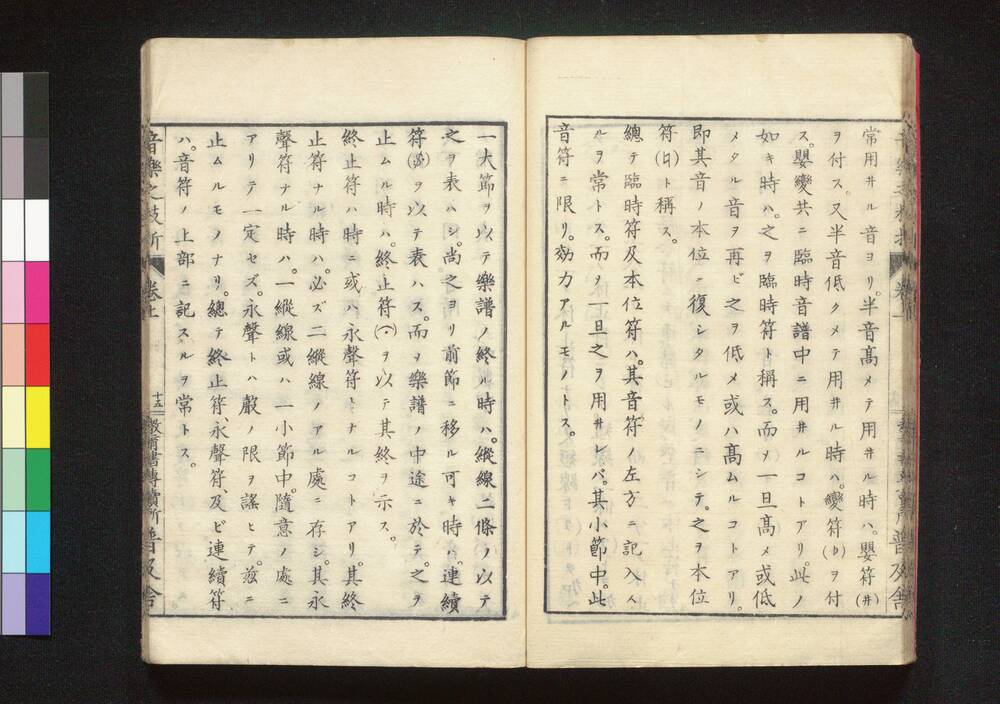 常用井ル音ヨリ。半音高メテ用井ル時ハ。嬰符(♯)
ヲ付ス。又半音低クメテ用井ル時ハ。變符(♭)ヲ付
ス。嬰變共ニ臨時音譜中ニ用井ルコトアリ。此ノ
如キ時ハ。之ヲ臨時符ト稱ス。而ノ一旦高メ或低
メタル音ヲ再ビ之ヲ低メ或ハ高ムルコトアリ。
即其音ノ本位ニ復シタルモノニシテ。之ヲ本位
符(♮)ト稱ス。
總テ臨時符及本位符ハ。其音符ノ左方ニ記入ス
ルヲ常トス。而ノ一旦之ヲ用井レバ。其小節中。此
音符ニ限リ。効力アルモノトス。
一大節ヲ以テ樂譜ノ終ル時ハ。縱線二條ノ以テ
之ヲ表ハシ。尚之ヨリ前節ニ移ル可キ時ハ。連續
符(𝄋)ヲ以テ表ハス。而ノ樂譜ノ中途ニ於テ。之ヲ
止ムル時ハ。終止符(𝄐)ヲ以テ其終ヲ示ス。
終止符ハ時ニ或ハ永聲符トナルコトアリ。其終
止符ナル時ハ。必ズ二縱線ノアル處ニ存シ。其永
聲符ナル時ハ。一縱線或ハ一小節中。隨意ノ處ニ
アリテ一定セズ。永聲トハ聲ノ限ヲ謠ヒテ。茲ニ
止ムルモノナリ。總テ終止符、永聲符、及ビ連續符
ハ。音符ノ上部ニ記スルヲ常トス。
音樂之枝折 卷上 十五 教育書專賣所普及舍